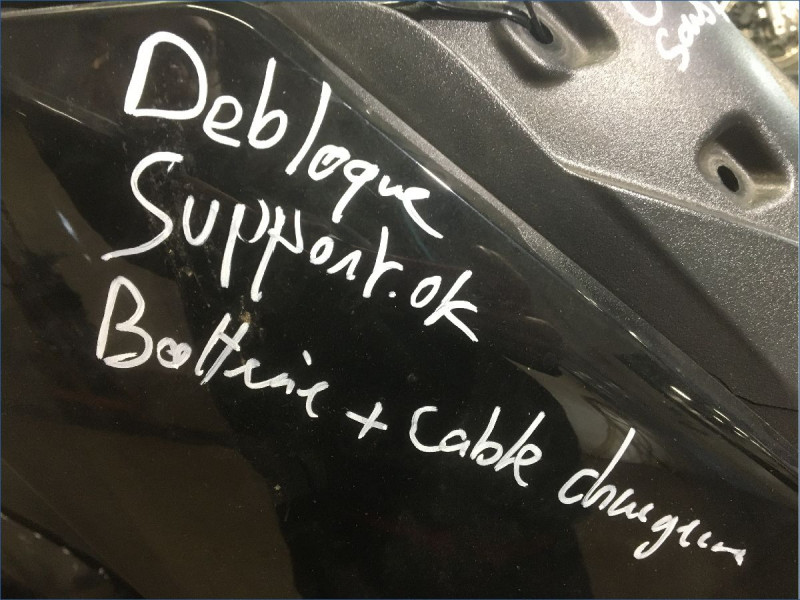 Debloque
Support.ok
Batterie + cable chargeur